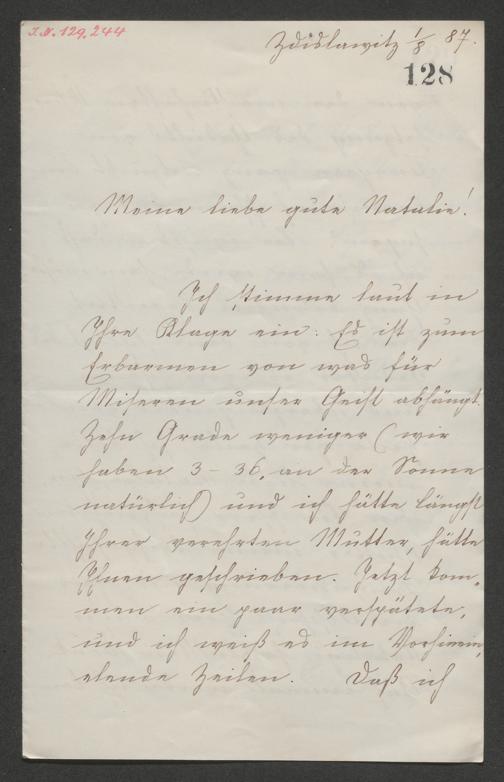 I.N. 129.244
Zdislawitz 1/8 87.
128
Meine liebe gute Natalie!
Ich stimme laut in
Ihre Klage ein: Es ist zum
Erbarmen von was für
Miseren unser Geist abhängt.
Zehn Grade weniger (wir
haben 3-36, an der Sonne
natürlich) und ich hätte längst
Ihrer verehrten Mutter, hätte
Ihnen geschrieben. Jetzt kom„
men ein paar verspätete,
und ich weiß es im Vorhinein,
elende Zeilen. Daß ich